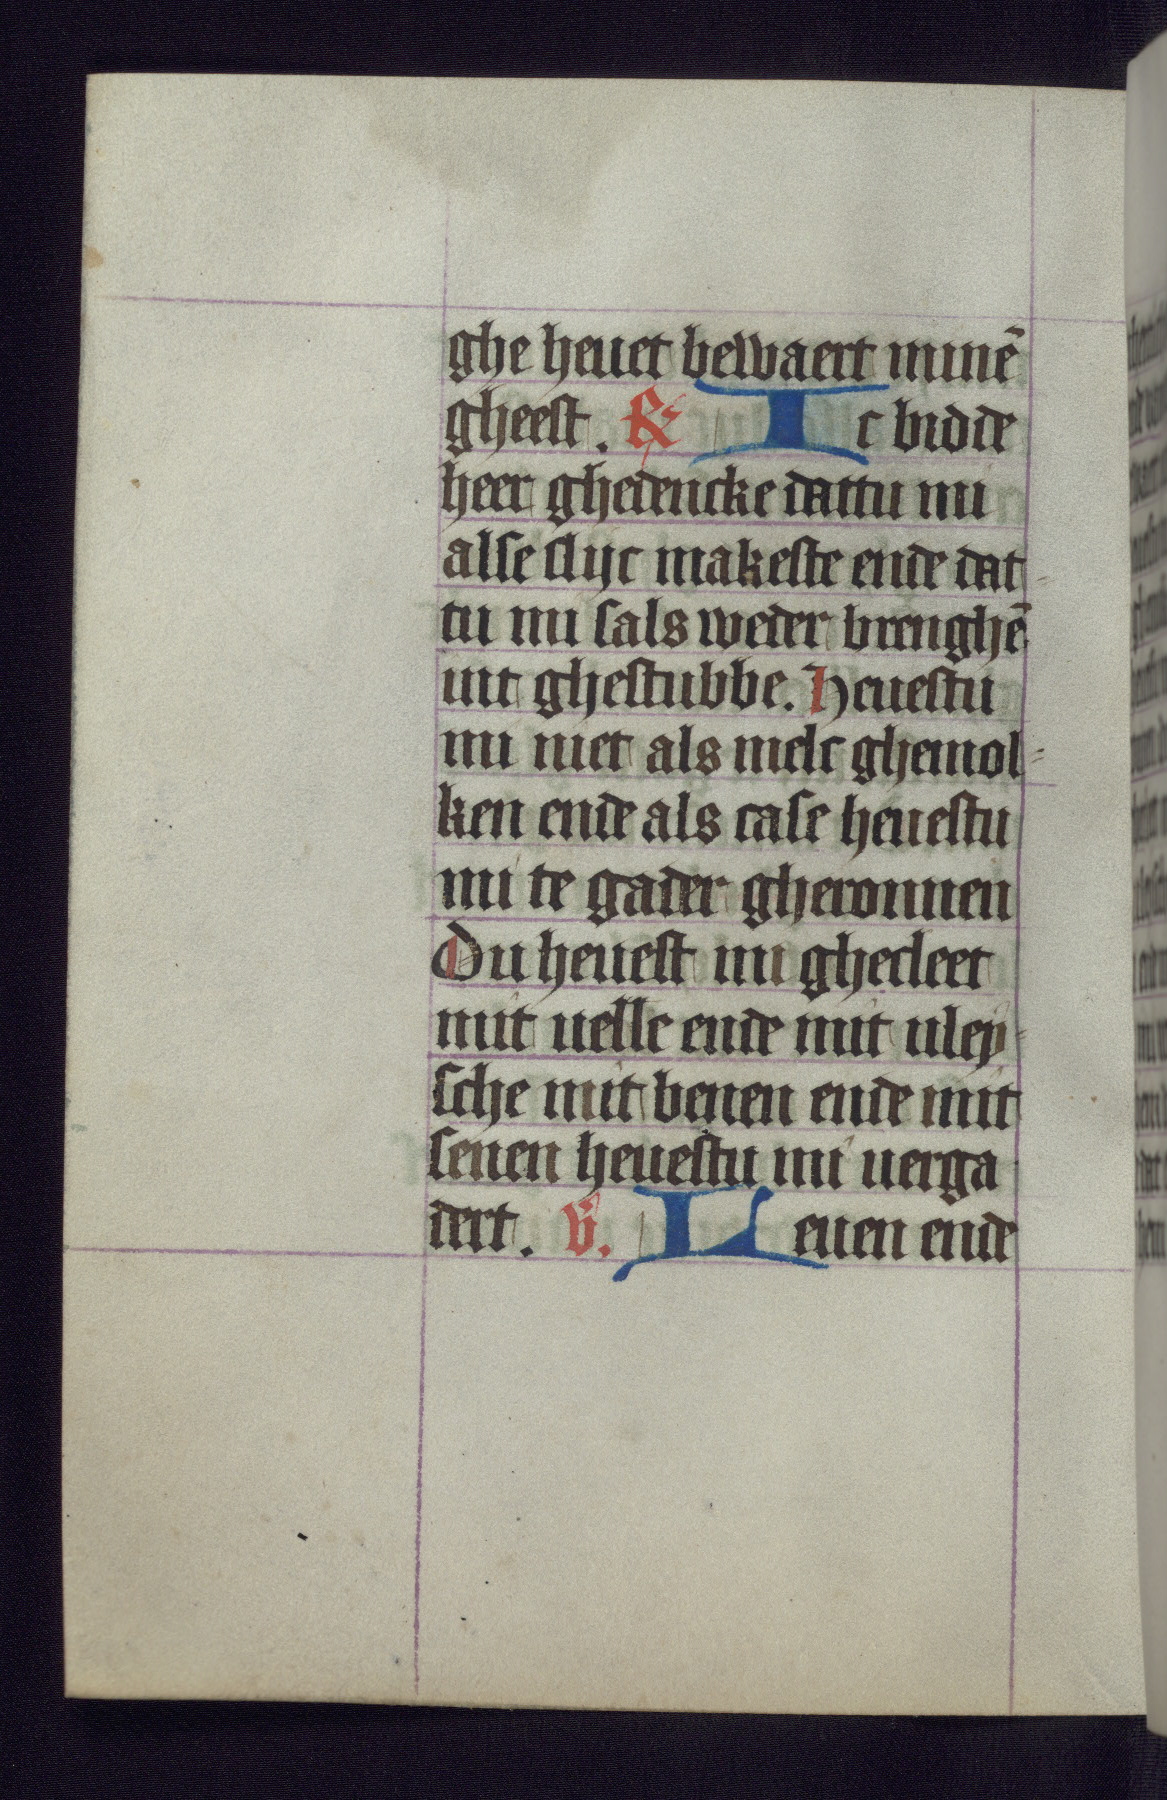 ghe heuet bewaert minē
gheest. ℟ Ic bidde
heer ghedencke dattu mi
alse slijc makeste ende dat
tu mi sals weder brenghē
int ghestubbe. Heuestu
mi niet als melc ghemol
ken ende als case heuestu
mi te gader gheronnen
Du heuest mi ghecleet
mit uelle ende mit uley
sche mit benen ende mit
senen heuestu mi uerga
dert. ℣. Leuen ende